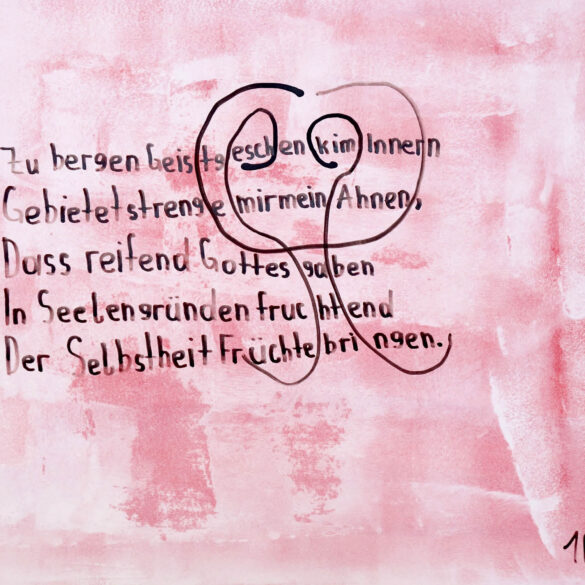 Zu bergen Geistgeschenk im Innern
Gebietet strenge mir mein Ahnen,
Dass reifend Gottesgaben
In Seelengründen fruchtend
Der Selbstheit Früchte bringen.